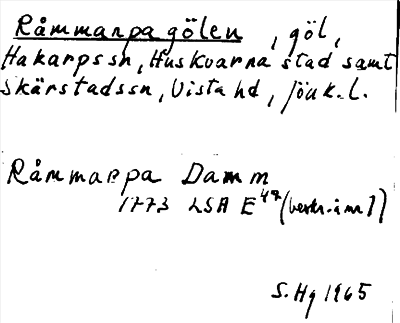 Råmmarpagölen, göl,
Hakarpssn, Huskvarna stad samt
Skärstadssn, Vista hd, Jönk. l.
Råmmarpa Damm
1773 LSA E 49
S. Hg 1965